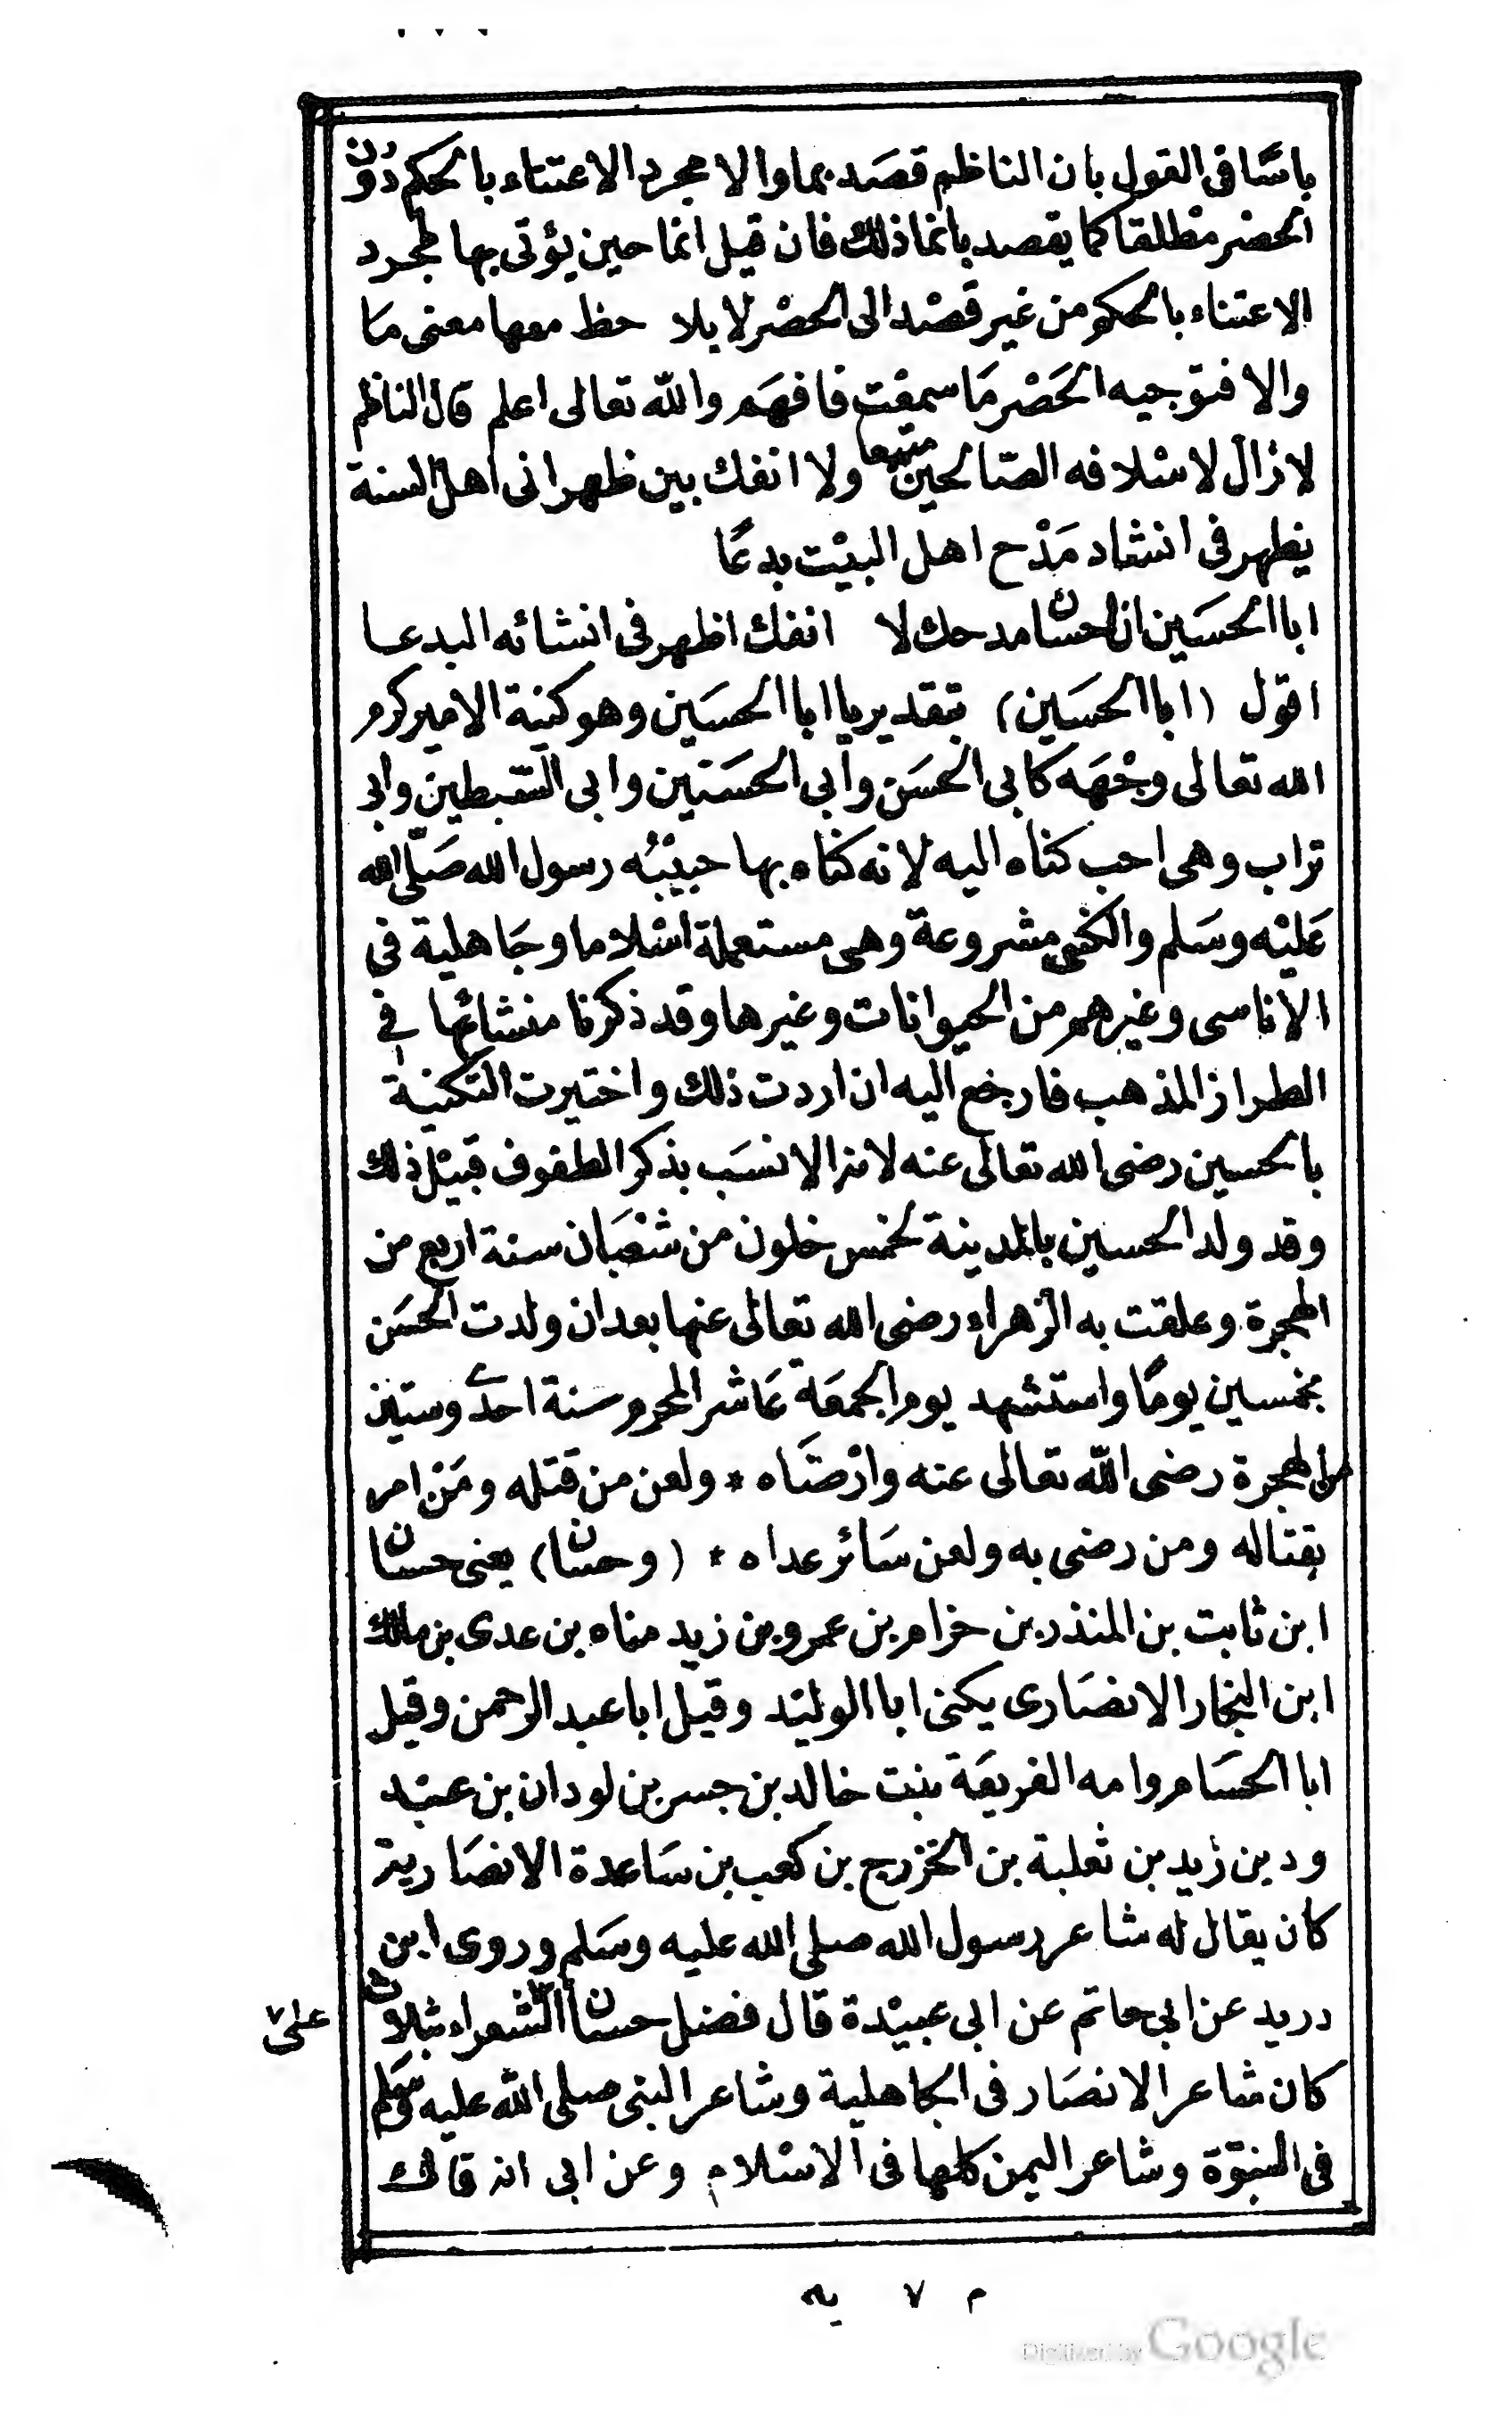 باسا فى القول بان الناظم قصَد بما والا مجرد الاعتناء بالحكم دون
الحصْر مطلقا كما يقصد بانما ذلك فان قيل انما حين يؤتى بها لمجرد
الاعتناء بالحكم من غير قصْد الى الحصْر لا يلاحظ معها معنى مَا
والا فتوجيه الحَصْر مَا سمعْت فافهَم والله تعالى اعلم قال الناظم
لازال لاسْلافه الصّالحين متبعا ولا انفك بين ظهرانى اهل السنة
يظهر فى انشاد مَدْح اهل البيْت بدعًا
ابا الحسَين ان احسّان مدحك لا انفك اظهر فى انشائه البدعا
اقول (ابا الحسَين) بتقدير يا ابا الحسَين وهو كنية الامير كرم
الله تعالى وجْهَه كابى الحسَن وابى الحسَنين وابى السّبطين وابى
تراب وهى احب كناه اليه لانه كناه بها حبيْبُه رسول الله صَلّى الله
عَليْه وسَلم والكنى مشروعة وهى مستعملة اسْلاما وجَاهلية فى
الاناسى وغيرهم من الحيوانات وغيرها وقد ذكرنا منشائها فى
الطراز المذهب فارجع اليه ان اردت ذلك واختيرت التكنية
بالحسين رضى الله تعالى عنه لانه الانسَب بذكر الطفوف قبيْل ذلك
وقد ولد الحسين بالمدينة لخمس خلون من شعْبَان سنة اربع من
الهجرة وعلقت به الزهراء رضى الله تعالى عنها بعد ان ولدت الحسَن
بخمسين يومًا واستشهد يوم الجمعَة عَاشر المحرم سنة احدى وستين
من الهجرة رضى الله تعالى عنه وارْضَاه * ولعن من قتله ومَنْ امر
بقتاله ومن رضى به ولعن سَائر عداه * (وحسّان) يعنى حسّان
ابن ثابت بن المنذر بن خزام بن عمرو بن زيد مناه بن عدى بن مالك
ابن النجار الانصَارى يكنى ابا الوليْد وقيل ابا عبد الرحمن وقيل
ابا الحسَام وامه الفريعَة بنت خالد بن جسر بن لودان بن عبْد
ود بن زيد بن ثعلبة بن الخزرج بن كعب بن سَاعدة الانصَارية
كان يقال له شاعر رسول الله صلى الله عليه وسَلم وروى ابن
دريد عن ابى حاتم عن ابى عبيْدة قال فضل حسان الشعراء بثلاث
على
كان شاعر الانصَار فى الجاهلية وشاعر النبى صلى الله عليه وسَلم
فى النبوّة وشاعر اليمن كلها فى الاسْلام وعن ابى انه قال
م ٧ يه
Digitized by Google